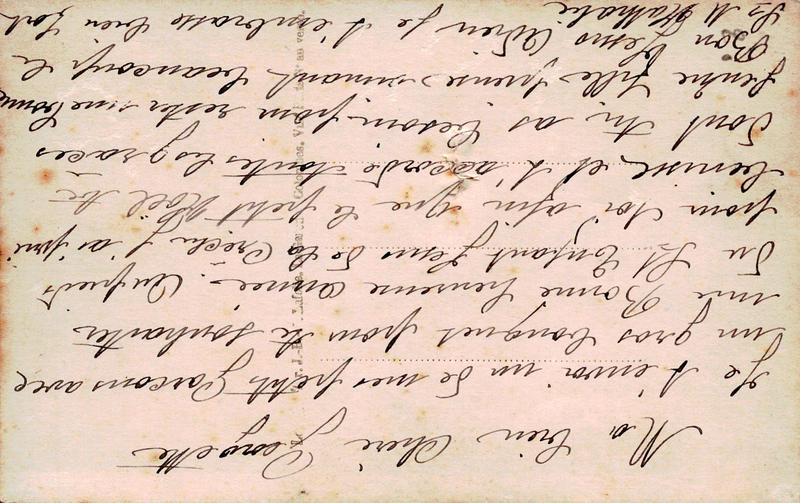 Ma bien Cheri Georgette
Je t'envoi un de mes petits Garcons avec
un gros bouquet pour te souhaiter
une Bonne heureuse année. Auprès
du St Enfant Jesus de la Crêche j'ai prié
pour toi afin que le petit Noël te
benisse, et t'accorde toutes les graces
dont tu as besoin, pour rester une bonne
petite fille pieuse aimant beaucoup le
Bon Jesus Adieu je t'embrasse bien fort
Sr M Nathalie